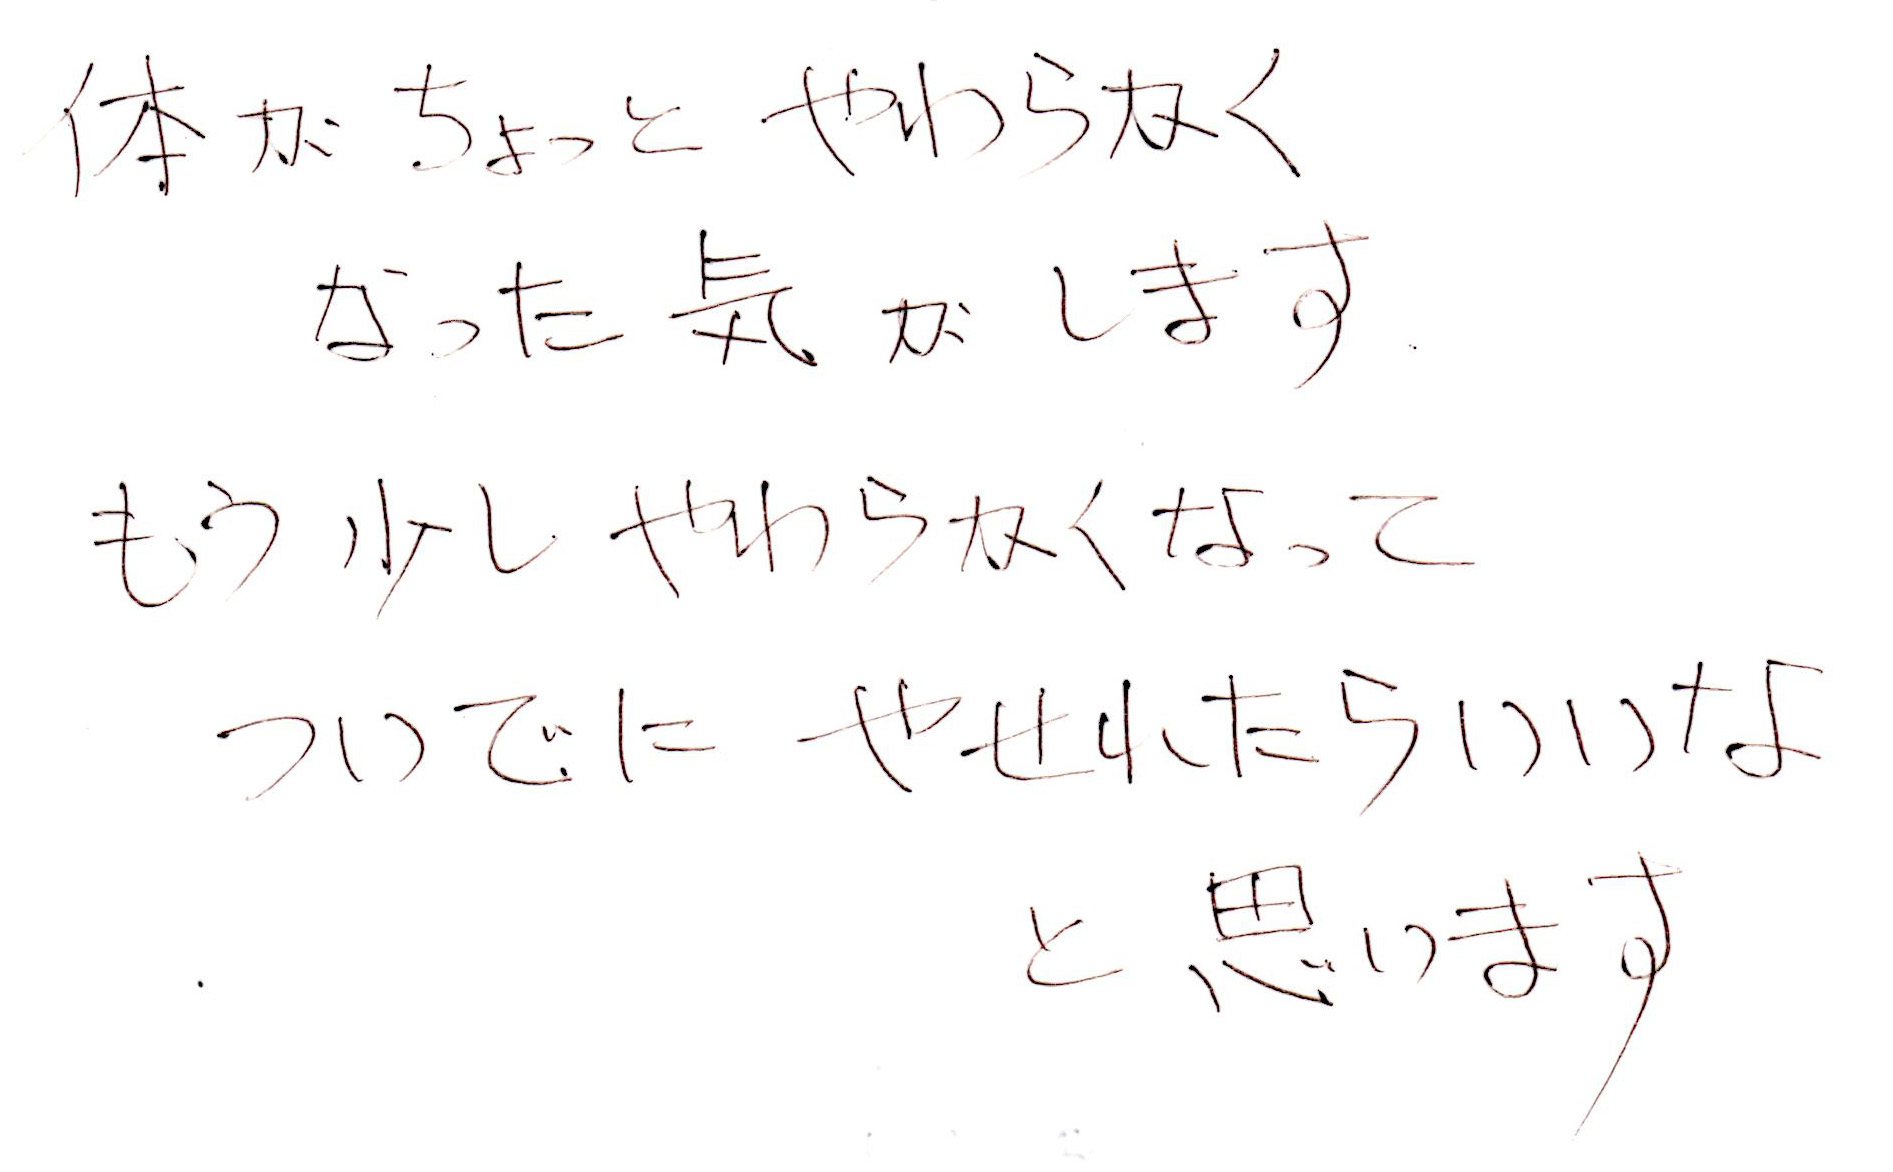 体がちょっと やわらかく
なった気がします
もう少しやわらかくなって
ついでに やせれたらいいな
と思います